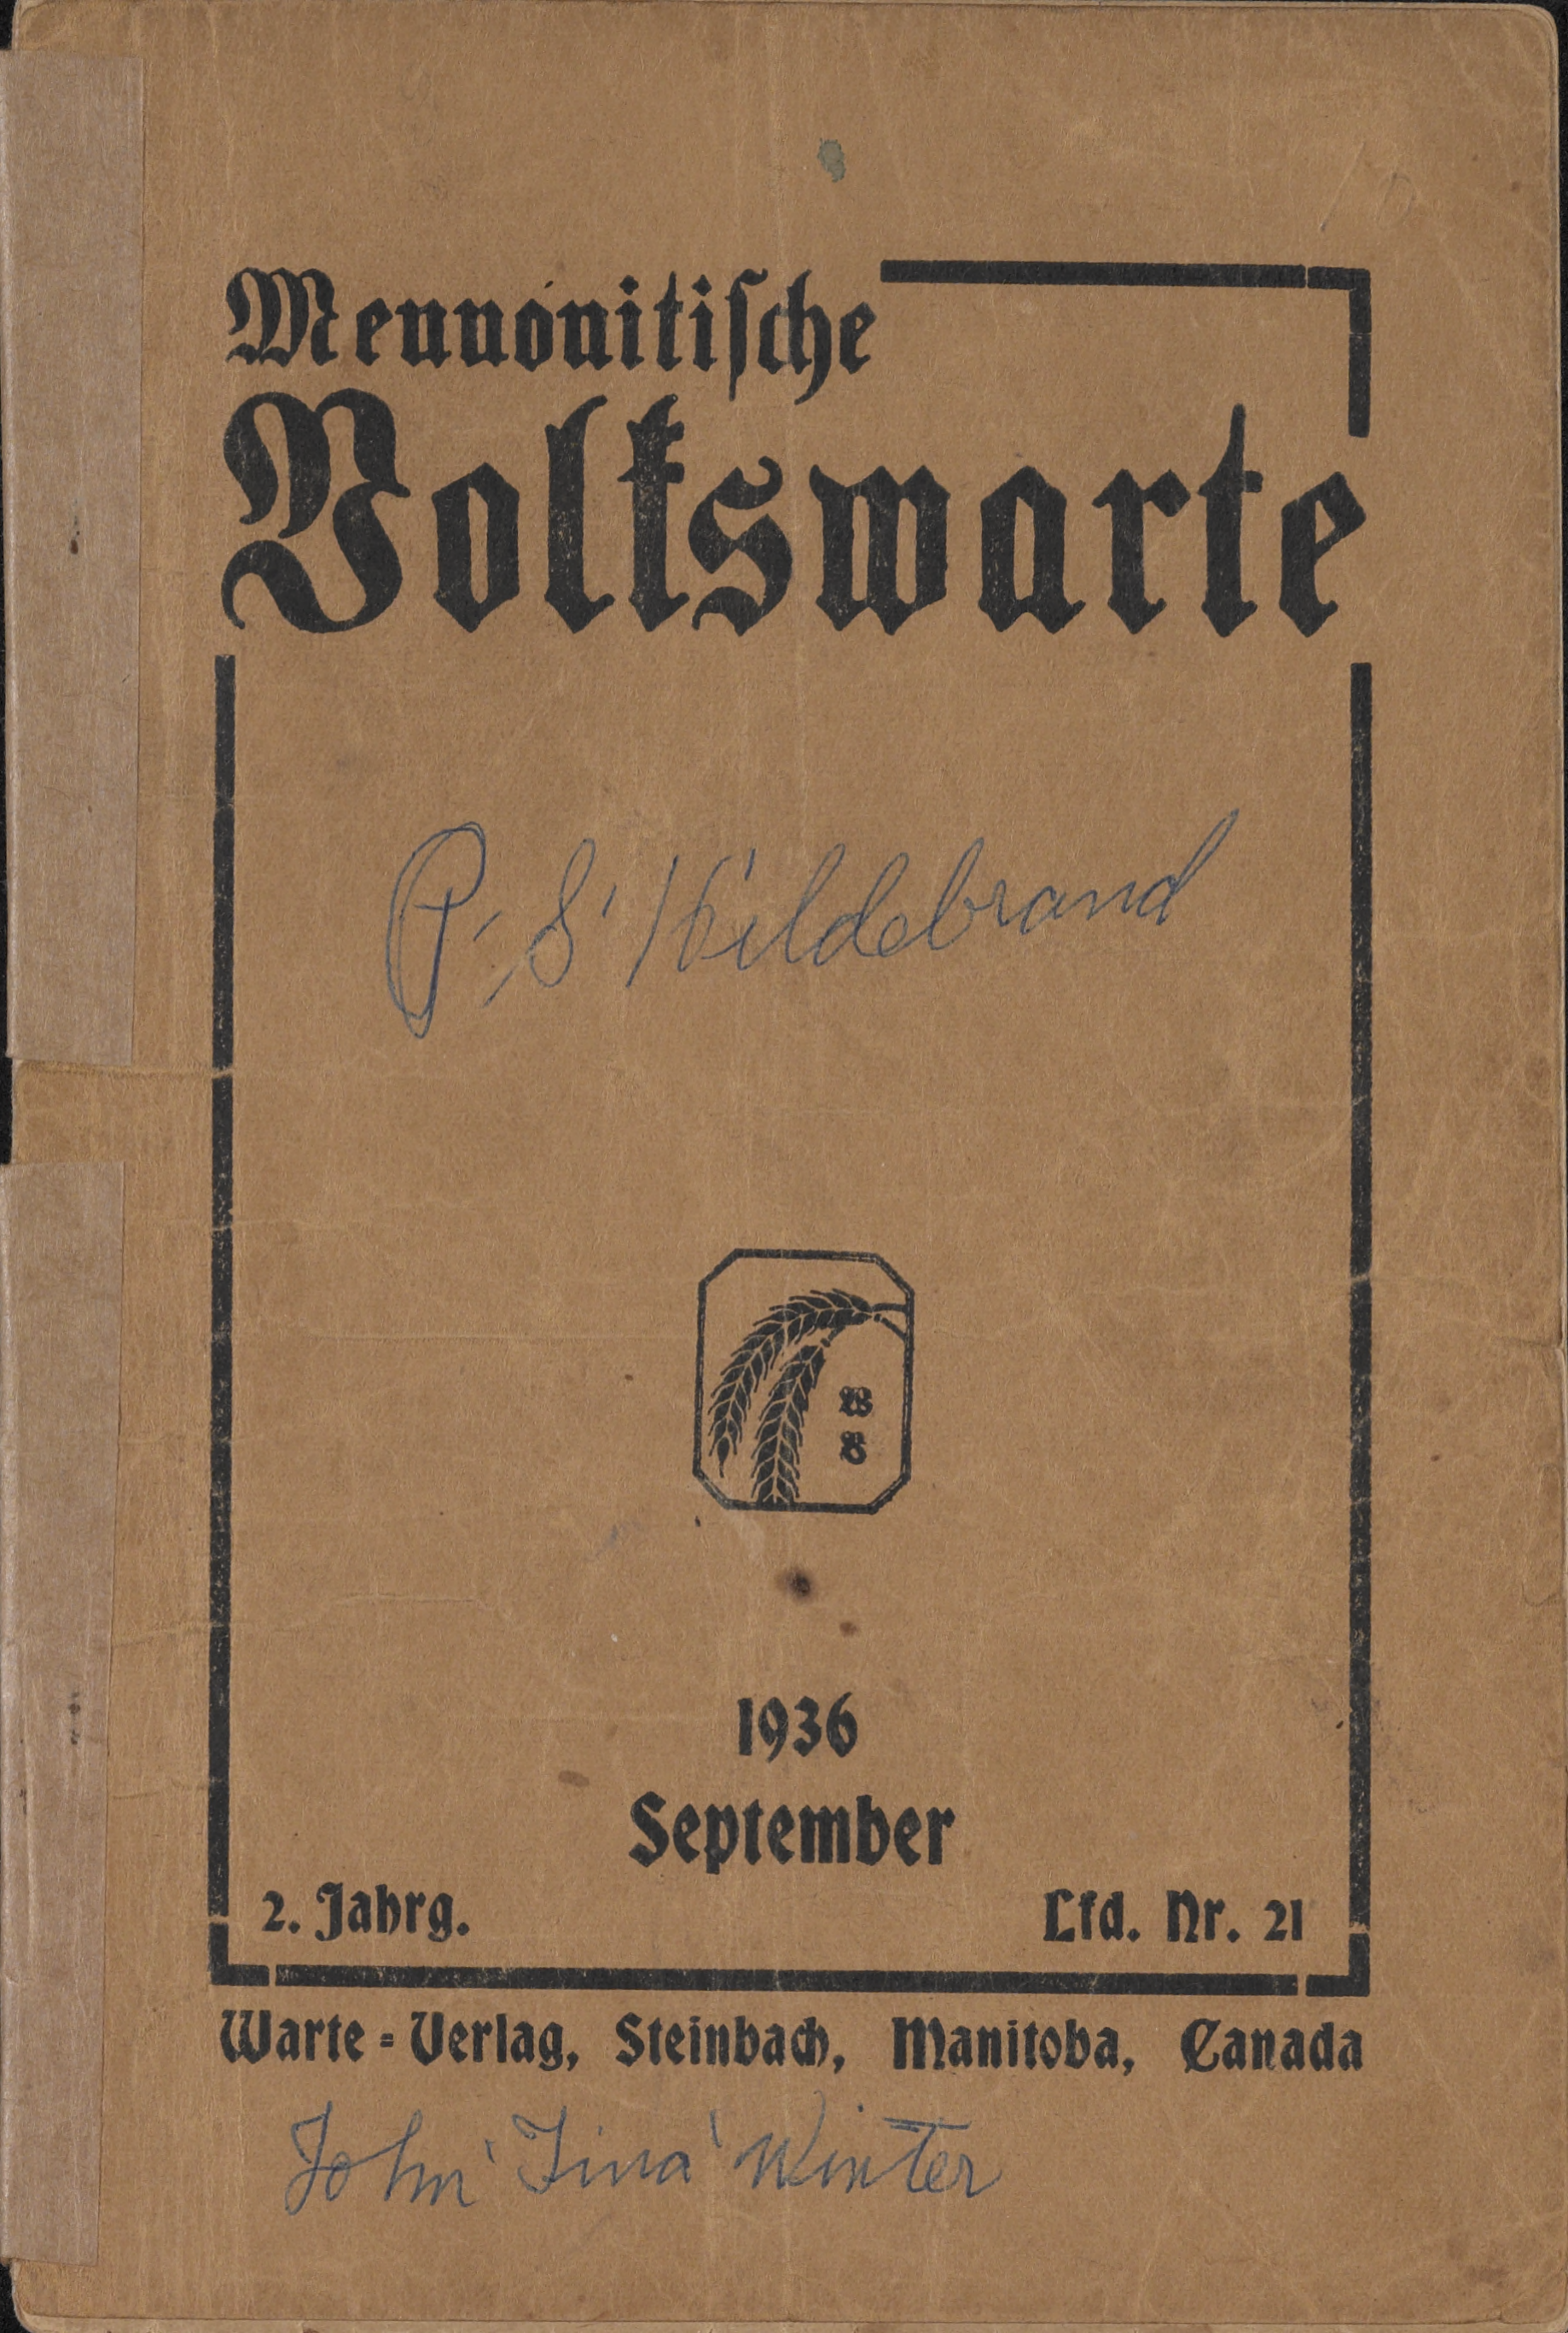 Mennonitische
Volkswarte
P. S. Hildebrand
1936
September
2. Jahrg.
Lfd. Nr. 21
Warte-Verlag, Steinbach, Manitoba, Canada
John Tina Winter